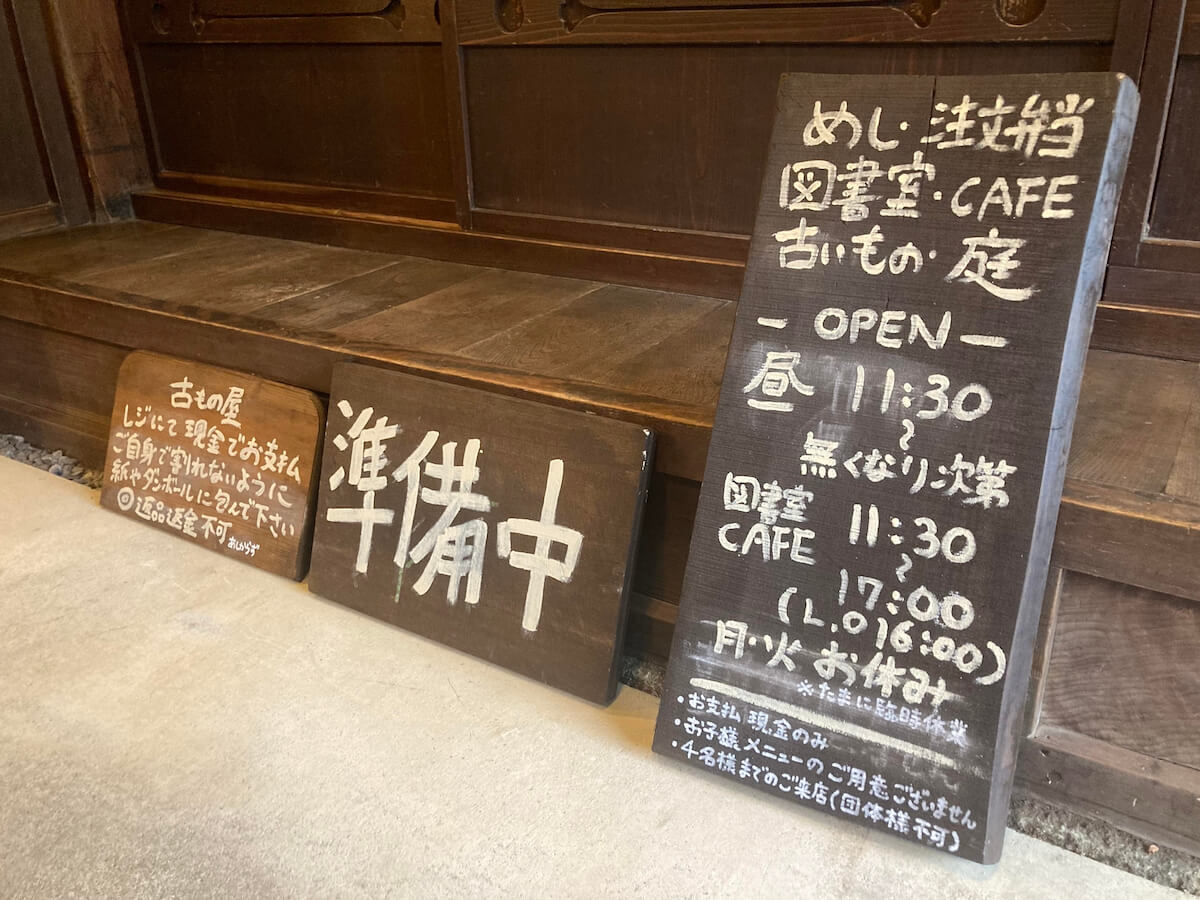 古もの屋
レジにて現金でお支払
ご自身で割れないように
紙やダンボールに包んで下さい
◎返品返金不可 あしからず
準備中
めし・注文弁当
図書室・CAFE
古いもの・庭
－OPEN－
昼 11:30
～
無くなり次第
図書室 CAFE 11:30
～
17:00
(L.O 16:00)
月・火 お休み
※たまに臨時休業
・お支払 現金のみ
・お子様メニューのご用意ございません
・4名様までのご来店(団体様不可)